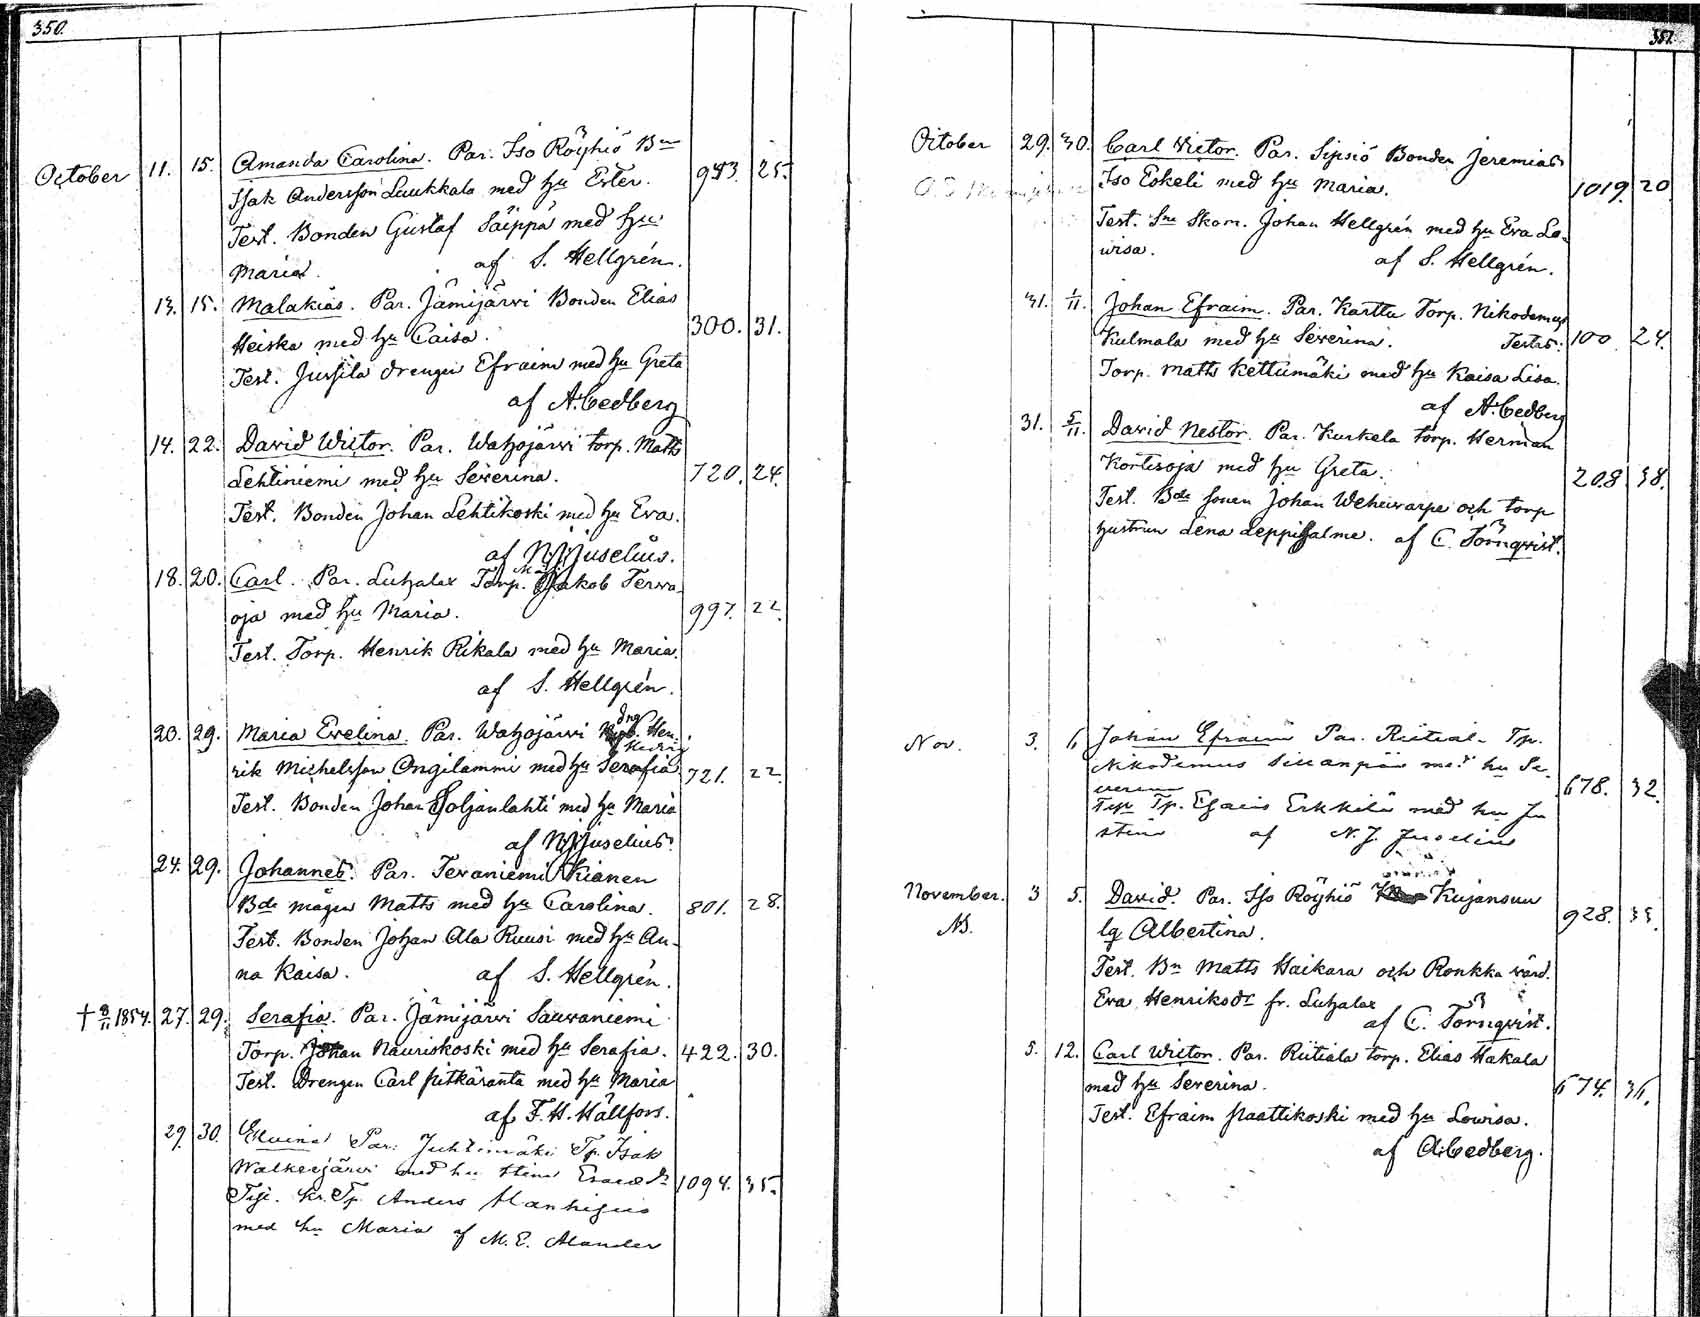 350.
October 11. 15. Amanda Carolina. Par. Iso Röyhiö Bn
Isak Andersson Luukkala med hu Ester. 943. 25.
Test. Bonden Gustaf Säippä med hu
Maria. af S. Hellgrén.
13. 15. Malakias. Par. Jämijärvi Bonden Elias
Heiska med hu Caisa. 300. 31.
Test. Jussila drengen Efraim med hu Greta
af A. Cedberg
14. 22. David Wictor. Par. Watzojärvi torp. Matts
Lehtiniemi med hu Severina. 720. 24.
Test. Bonden Johan Lehtikoski med hu Eva.
af N. J. Juselius.
18. 20. Carl. Par. Luhalax Torp. Jakob Terva-
oja med hu Maria. 997. 22.
Test. Torp. Henrik Rikala med hu Maria.
af S. Hellgrén.
20. 29. Maria Evelina. Par. Watzojärvi Hen-
rik Michelsson Ongilammi med hu Serafia 721. 22.
Test. Bonden Johan Poljanlahti med hu Maria
af N. J. Juselius.
24. 29. Johannes. Par. Tevaniemi Kianen
Bde mågen Matts med hu Carolina. 801. 28.
Test. Bonden Johan Ala Ruusi med hu An-
na Kaisa. af S. Hellgrén.
† 8/11 1854. 27. 29. Serafia. Par. Jämijärvi Sauvaniemi
Torp. Johan Nauriskoski med hu Serafia. 422. 30.
Test. Drengen Carl Pitkäranta med hu Maria
af F. H. Hällfors.
29. 30. Elvina Par. Juhtimäki Tp. Isak
Walkerjärvi med hu Stina 1094. 35.
Tp. Anders Manhigus
med hu Maria af M. E. Alander
351.
October 29. 30. Carl Victor. Par. Sipsiö Bonden Jeremias
Iso Eskeli med hu Maria. 1019. 20
Test. Sne Skom. Johan Hellgrén med hu Eva Lo-
wisa. af S. Hellgrén.
31. 1/11. Johan Efraim. Par. Karttu Torp. Nikodemus
Kulmala med hu Severina. Testes: 100 24.
Torp. Matts Kettumäki med hu Kaisa Lisa.
af A. Cedberg
31. 5/11. David Nestor. Par. Kurkela torp. Herman
Kortesoja med hu Greta. 208 38.
Test. Bde sonen Johan Wehuvarpe och torp
hustrun Lena Leppisalme. af C. Törnqvist.
Nov. 3. 6 Johan Efraim Par. Riitiala Tp.
Nikodemus Sillanpää med hu Se-
verina 678. 32.
Tp. Esaias Erkkilä med hu Ju
stina af N. J. Juselius
November. 3 5. David. Par. Iso Röyhiö Kujansuu
NB. lq Albertina. 928. 33.
Test. Bn Matts Haikara och Ronkka värd.
Eva Henriksdr fr. Luhalax
af C. Törnqvist.
5. 12. Carl Wictor. Par. Riitiala torp. Elias Hakala
med hu Severina. 674. 36.
Test. Efraim Paattikoski med hu Lowisa.
af A. Cedberg.